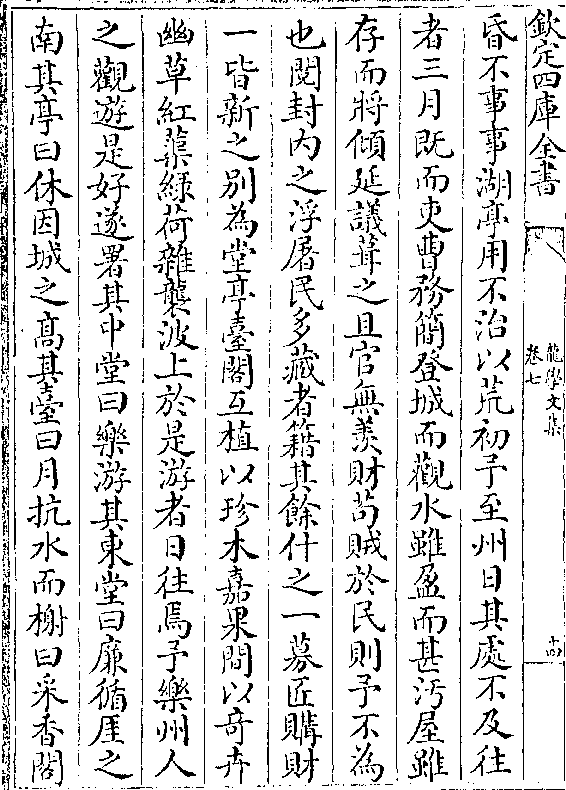 欽定四庫全書
龍學文集
卷七
十四
昏不事事湖亭用不治以荒初予至州日其處不及往
者三月既而吏曹務簡登城而觀水雖盈而甚汚屋雖
存而將傾延議葺之且官無羨財苟賊於民則予不為
也閱封内之浮屠民多藏者籍其餘什之一募匠購財
一皆新之别為堂亭臺閣互植以珍木嘉果間以竒卉
幽草紅蕖緑荷雜襲波上於是游者日往焉予樂州人
之觀遊是好遂署其中堂曰樂游其東堂曰廉循厓之
南其亭曰休因城之髙其臺曰月抗水而榭曰采香閣